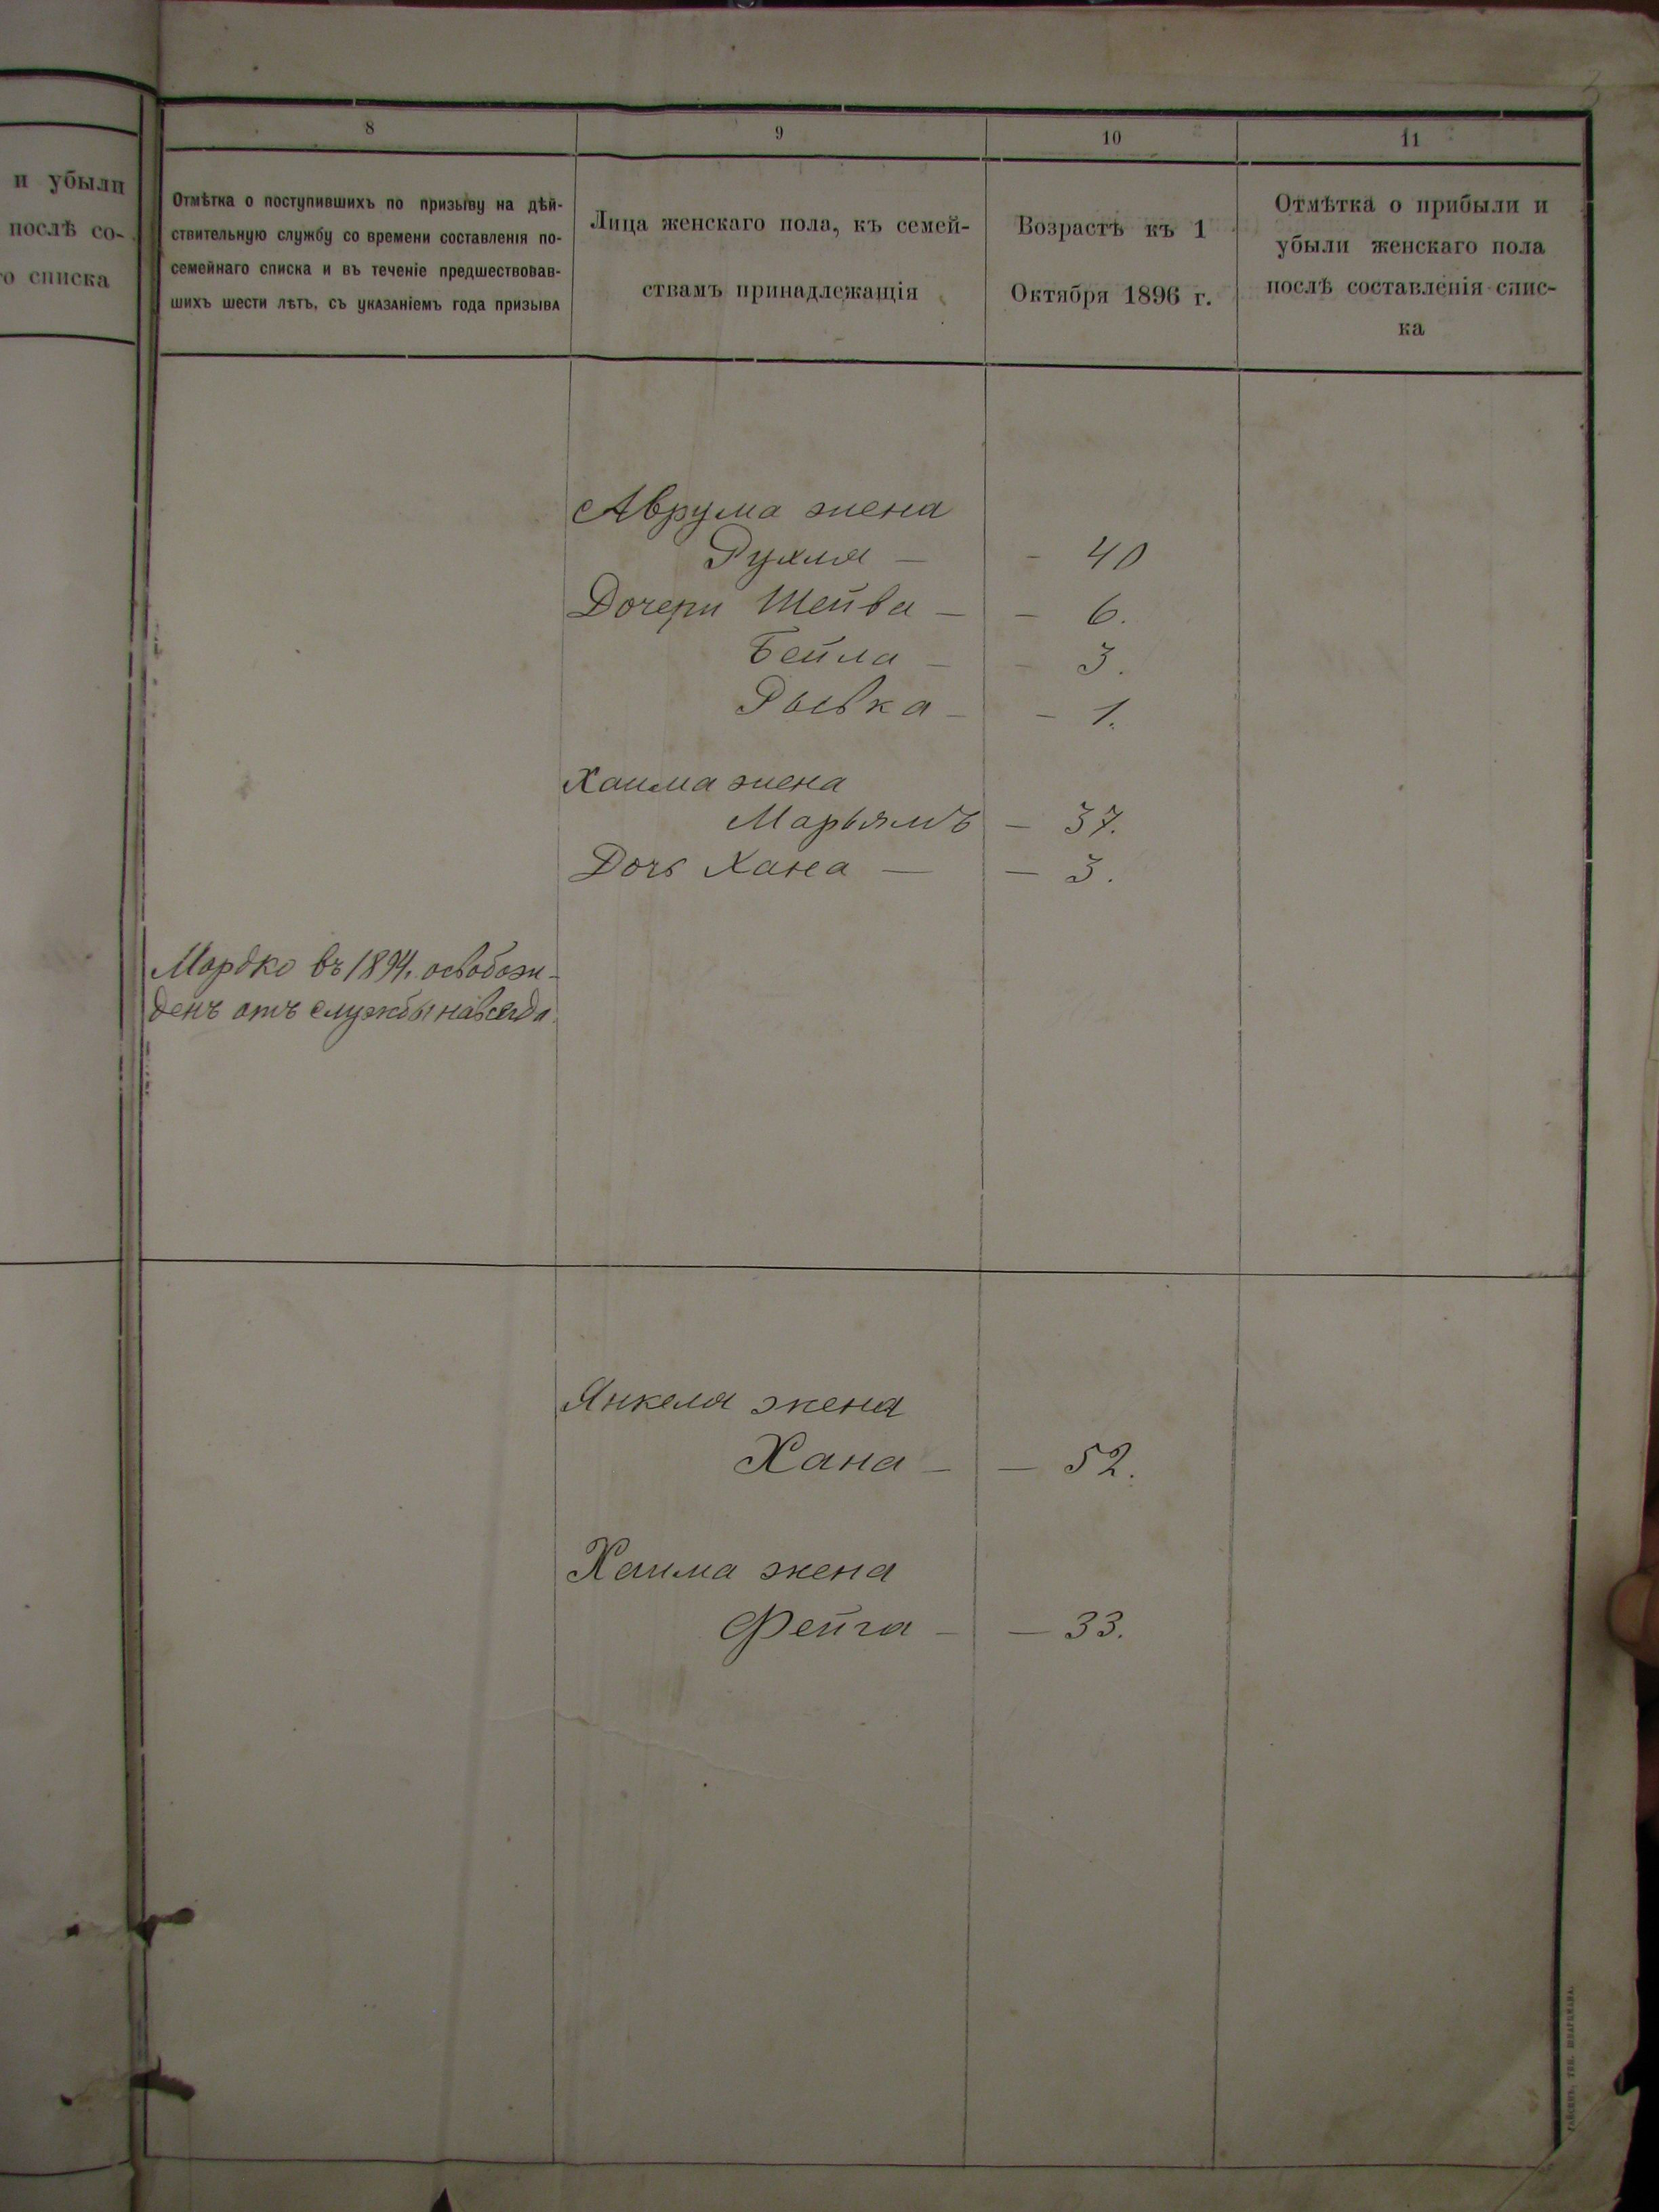 и убыли
послѣ со-
о списка
8
9
10
11
Отмѣтка о поступившихъ по призыву на дѣй-
ствительную службу со времени составленія по-
семейнаго списка и въ теченіе предшествовав-
шихъ шести лѣтъ, съ указаніемъ года призыва
Лица женскаго пола, къ семей-
ствамъ принадлежащія
Возрастъ къ 1
Октября 1896 г.
Отмѣтка о прибыли и
убыли женскаго пола
послѣ составленія спис-
ка
Аврума жена
Рухля — — 40
Дочери Шейва — — 6.
Бейла — — 3.
Рывка — — 1.
Хаима жена
Марьямъ — 37.
Дочь Хана — — 3.
Мордко въ 1894. освобож-
денъ отъ службы навсегда.
Янкеля жена
Хана — — 52.
Хаима жена
Фейга — — 33.